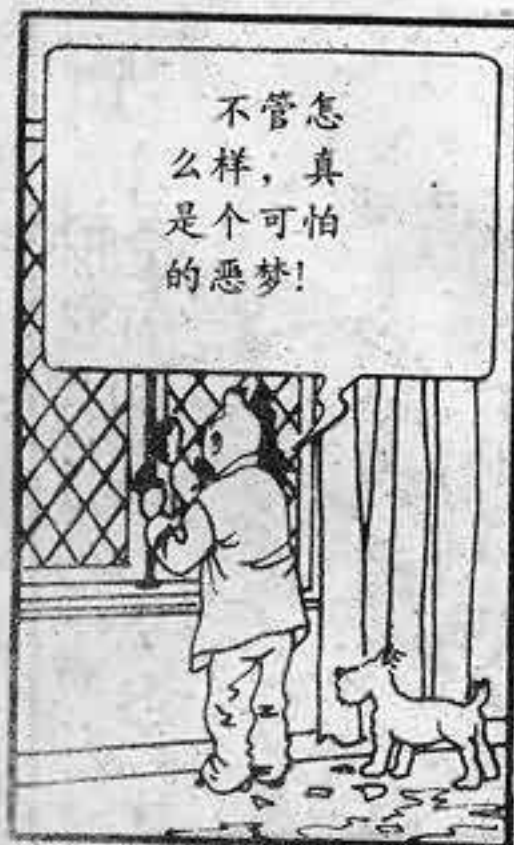 不管怎
么样，真
是个可怕
的恶梦!